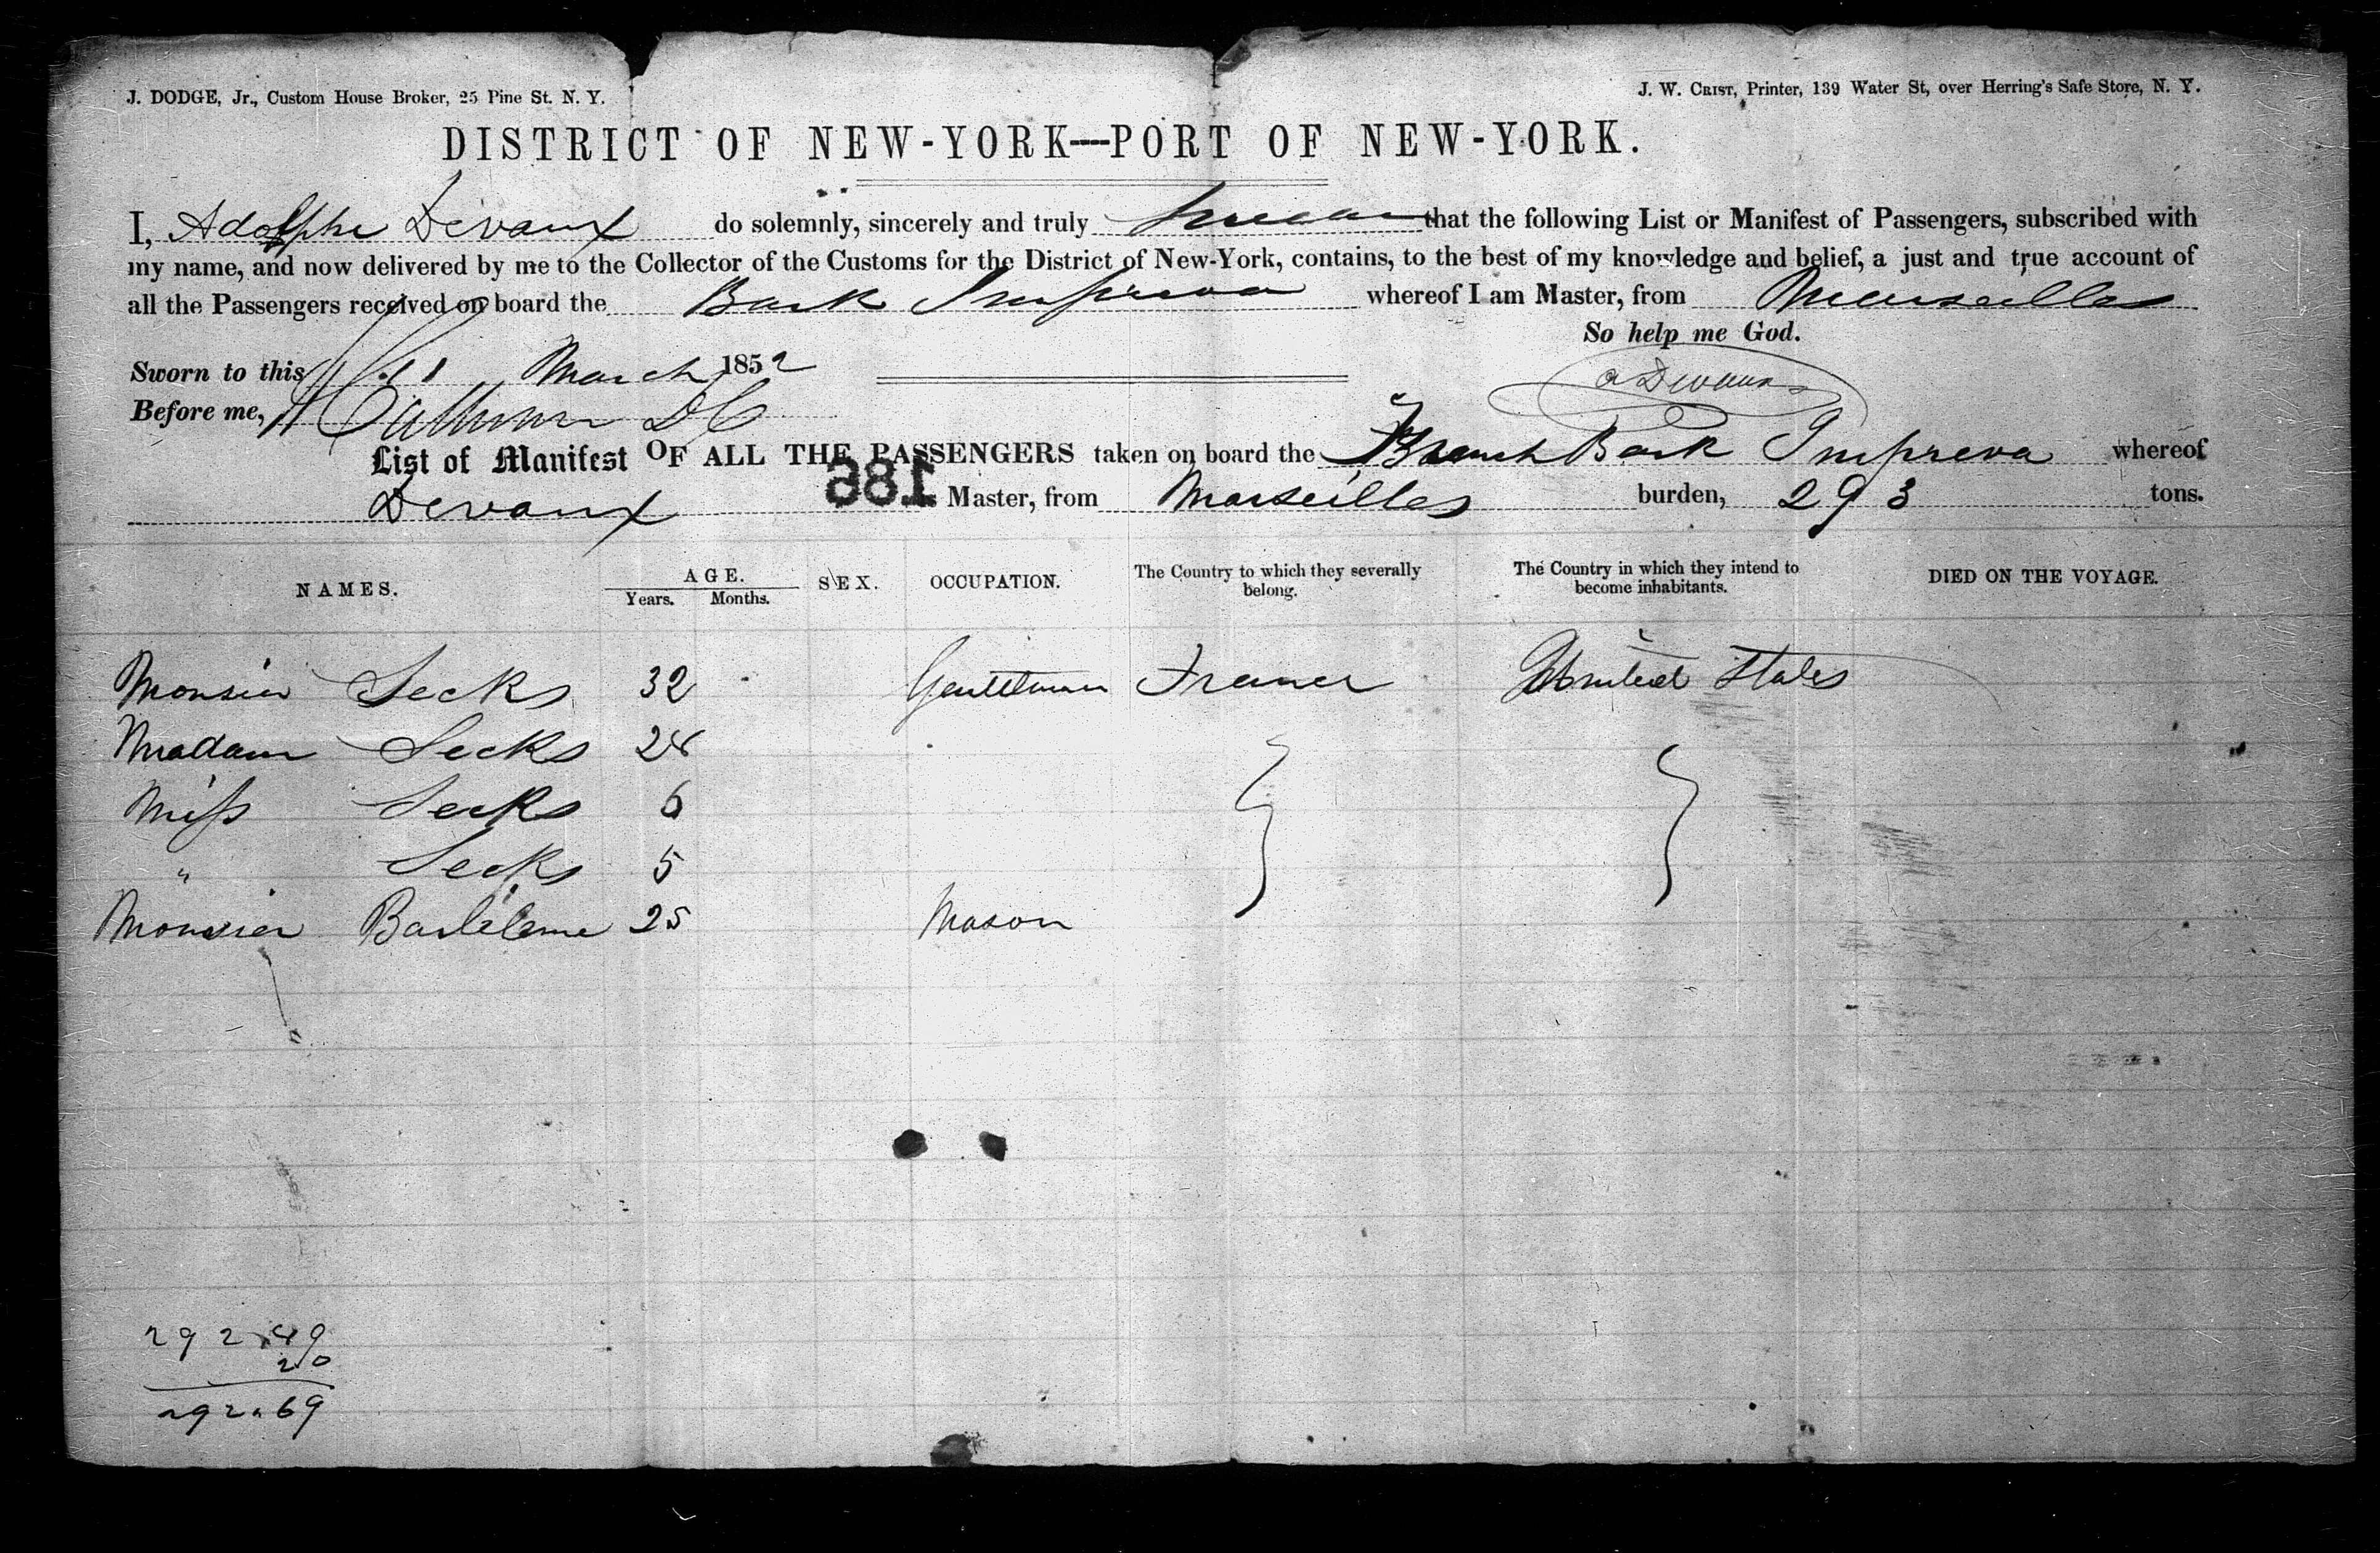 J. DODGE, Jr., Custom House Broker, 25 Pine St. N. Y.
J. W. CRIST, Printer, 139 Water St, over Herring's Safe Store, N. Y.
DISTRICT OF NEW-YORK—PORT OF NEW-YORK.
I, Adolphe Devaux do solemnly, sincerely and truly swear that the following List or Manifest of Passengers, subscribed with
my name, and now delivered by me to the Collector of the Customs for the District of New-York, contains, to the best of my knowledge and belief, a just and true account of
all the Passengers received on board the Bark Impreva whereof I am Master, from Marseilles
So help me God.
Sworn to this 11 March 1852
a Devaux
Before me,
List of Manifest OF ALL THE PASSENGERS taken on board the French Bark Impreva whereof
Devaux Master, from Marseilles burden, 293 tons.
186
NAMES. AGE. SEX. OCCUPATION. The Country to which they severally belong. The Country in which they intend to become inhabitants. DIED ON THE VOYAGE.
Years. Months.
Monsier Secks 32 Gentleman France United States
Madam Secks 28
Miss Secks 6
" Secks 5
Monsier Barteleme 25 Mason
292.49
20
292.69